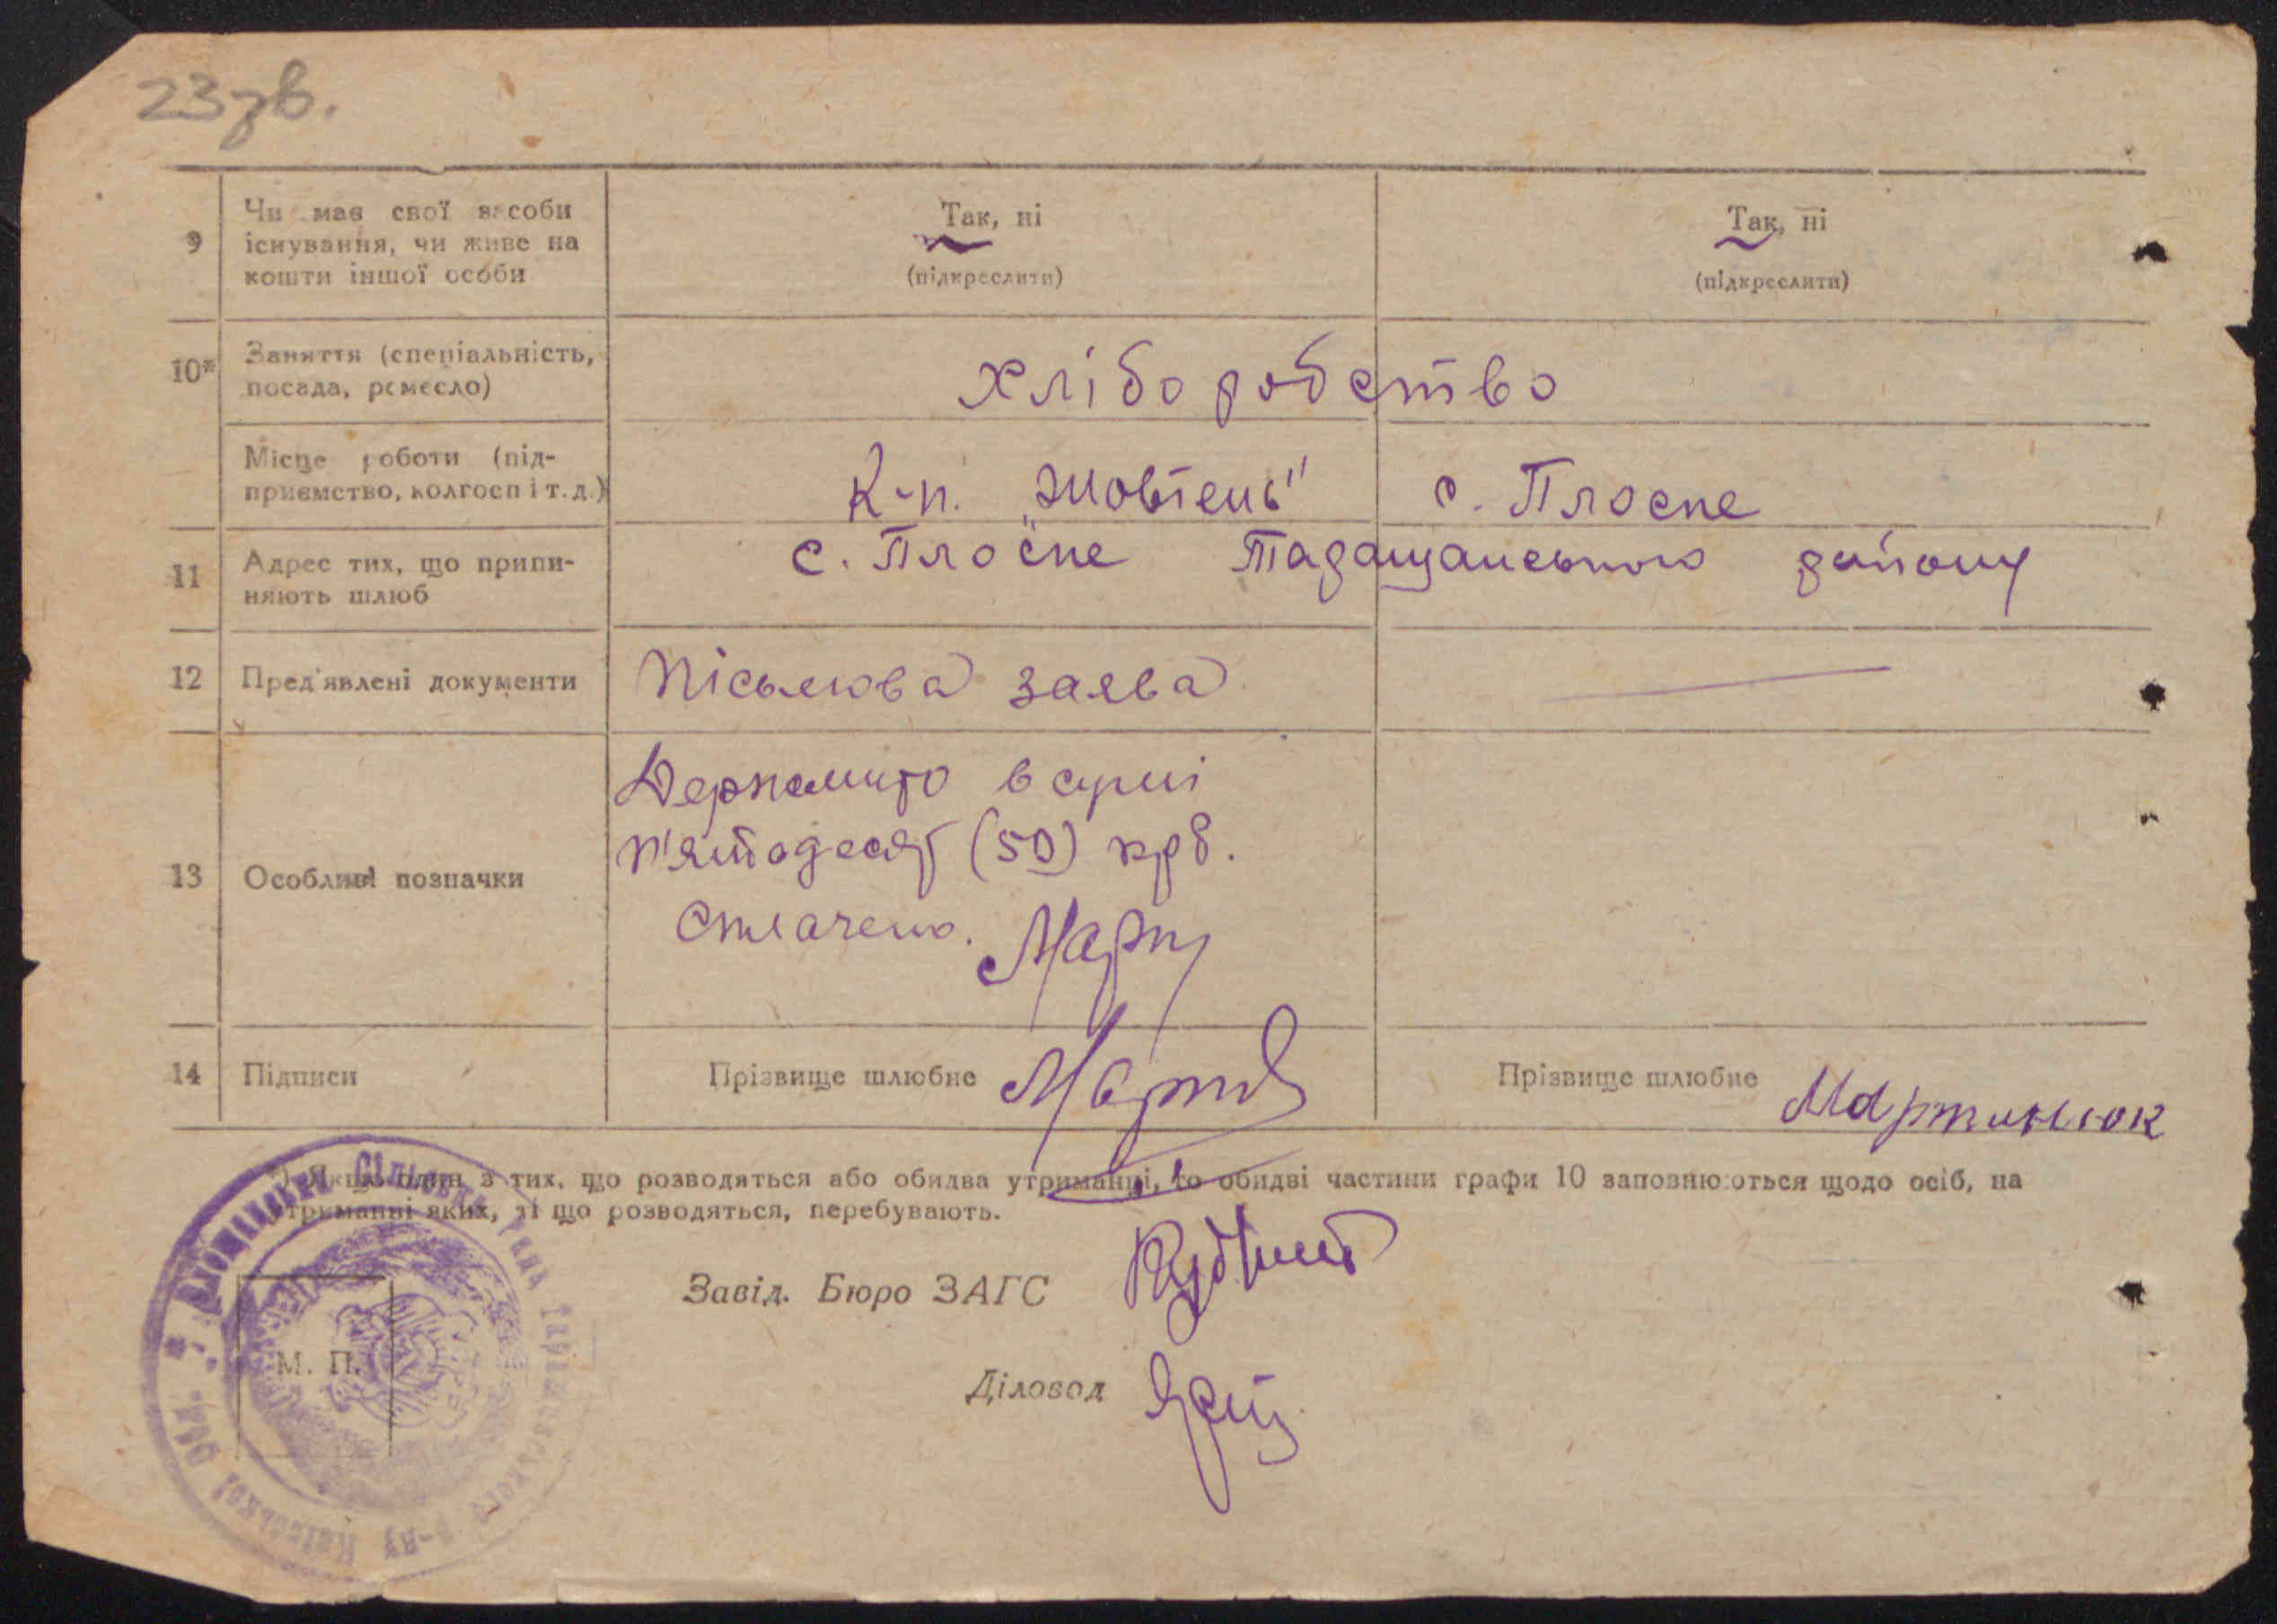 23зв.
9
Чи має свої засоби
існування, чи живе на
кошти іншої особи
Так, ні
(підкреслити)
Так, ні
(підкреслити)
10*
Заняття (спеціальність,
посада, ремесло)
хліборобство
Місце роботи (під-
приємство, колгосп і т. д.)
К-п. „Жовтень" с. Плоске
11
Адрес тих, що припи-
няють шлюб
с. Плоске Таращанського району
12
Пред'явлені документи
Пісьмова заява
13
Особливі позначки
Держмито в сумі
п'ятодесят (50) крб.
сплачено.
14
Підписи
Прізвище шлюбне
Прізвище шлюбне Мартинюк
*) Якщо один з тих, що розводяться або обидва утриманці, то обидві частини графи 10 заповнюються щодо осіб, на
утриманні яких, ті що розводяться, перебувають.
Завід. Бюро ЗАГС
Діловод
М. П.
Сільська Рада Таращанського р-ну Київської Обл.